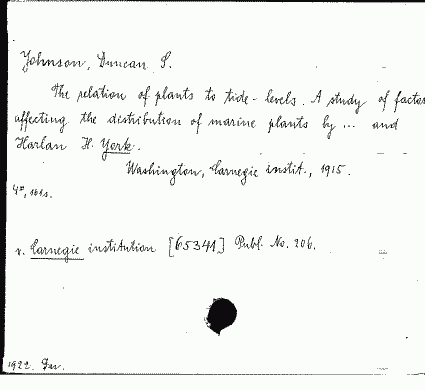 Johnson, Duncan S.
The relation of plants to tide-levels. A study of factors
affecting the distribution of marine plants by ... and
Harlan H. York.
Washington, Carnegie instit., 1915.
4°, 161 s.
v. Carnegie institution [65341] Publ. No. 206.
1922.